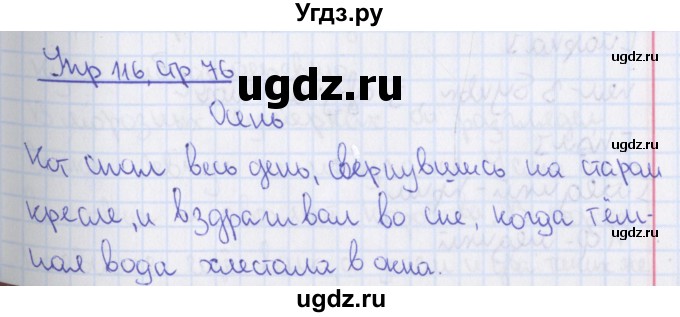 Угдз.ру
Упр 116, стр 76
ugdz.ru
ugdz.ru
Осень
Кот спал весь день, свернувшись на старом
ugdz.ru
кресле, и вздрагивал во сне, когда тём-
ugdz.ru
ная вода хлестала в окна.
ugdz.ru
ugdz.ru